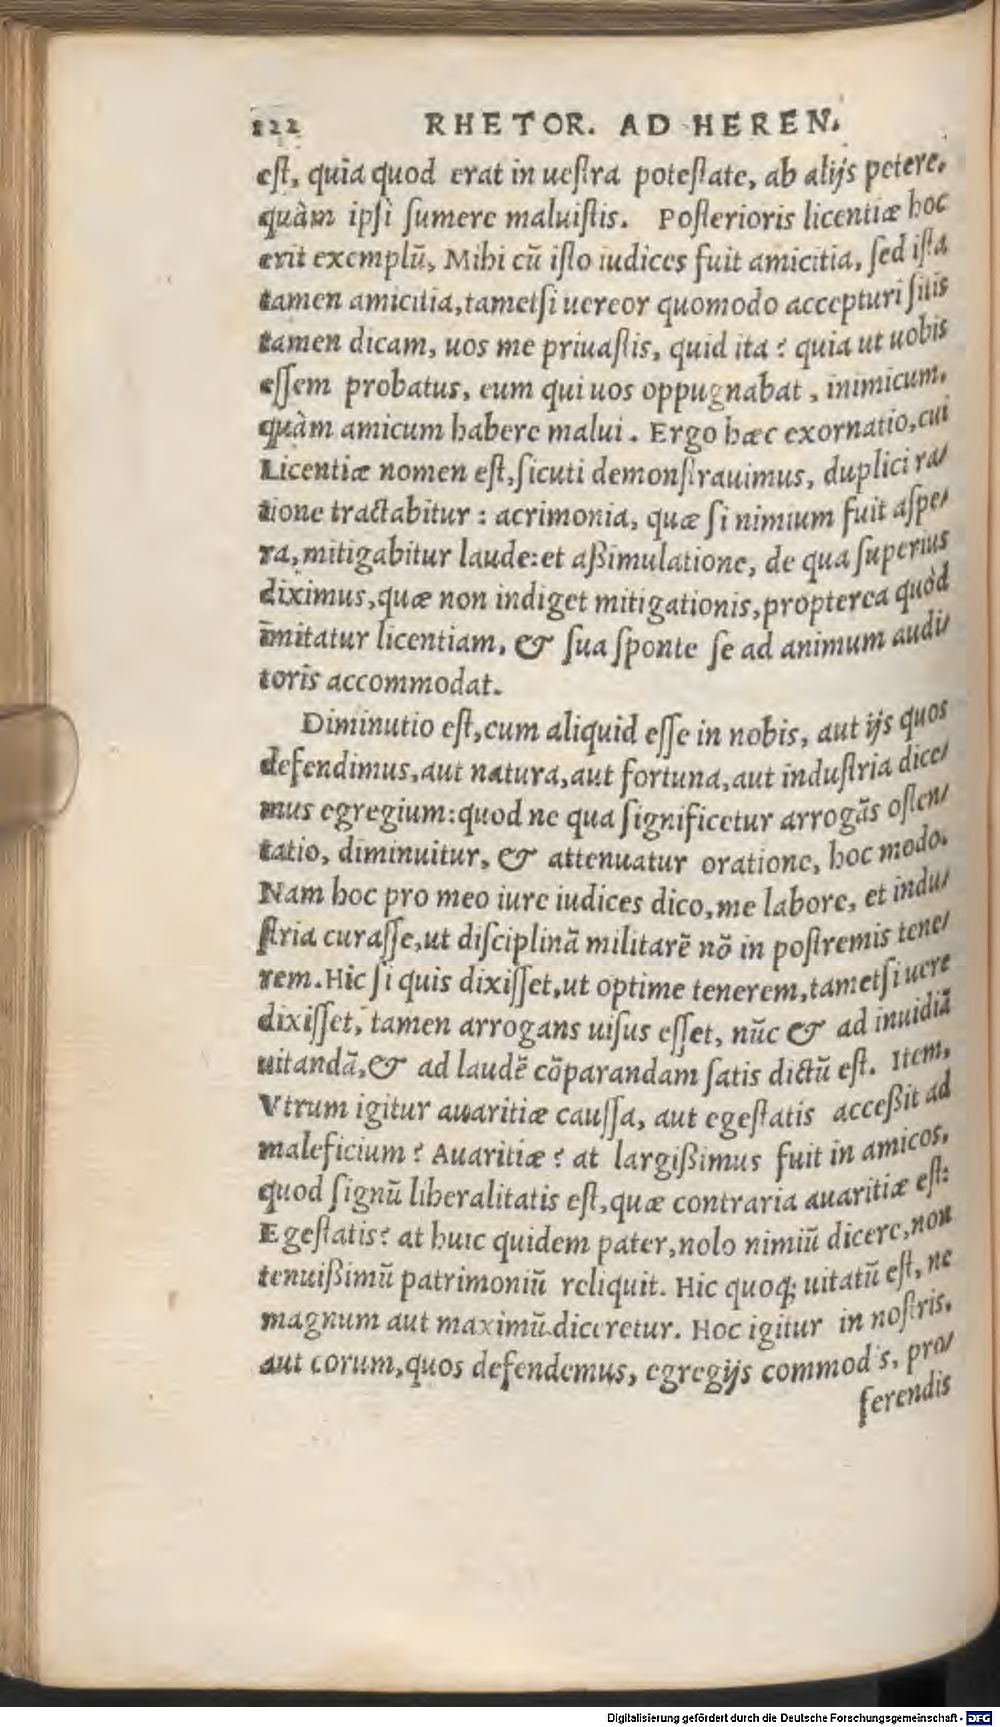 122 RHETOR. AD HEREN.
est, quia quod erat in uestra potestate, ab alijs petere,
quàm ipsi sumere maluistis. Posterioris licentiæ hoc
erit exemplũ, Mihi cũ isto iudices fuit amicitia, sed ista
tamen amicitia, tametsi uereor quomodo accepturi sitis
tamen dicam, uos me priuastis, quid ita? quia ut uobis
essem probatus, eum qui uos oppugnabat, inimicum,
quàm amicum habere malui. Ergo hæc exornatio, cui
Licentiæ nomen est, sicuti demonstrauimus, duplici ra/
tione tractabitur: acrimonia, quæ si nimium fuit aspe/
ra, mitigabitur laude: et aßimulatione, de qua superius
diximus, quæ non indiget mitigationis, propterea quòd
imitatur licentiam, & sua sponte se ad animum audi/
toris accommodat.
Diminutio est, cum aliquid esse in nobis, aut ijs quos
defendimus, aut natura, aut fortuna, aut industria dice/
mus egregium: quod ne qua significetur arrogãs osten/
tatio, diminuitur, & attenuatur oratione, hoc modo.
Nam hoc pro meo iure iudices dico, me labore, et indu/
stria curasse, ut disciplinã militarẽ nõ in postremis tene/
rem. Hic si quis dixisset, ut optime tenerem, tametsi uere
dixisset, tamen arrogans uisus esset, nũc & ad inuidiã
uitandã, & ad laudẽ cõparandam satis dictũ est. Item,
Vtrum igitur auaritiæ caussa, aut egestatis acceßit ad
maleficium? Auaritiæ? at largißimus fuit in amicos,
quod signũ liberalitatis est, quæ contraria auaritiæ est:
Egestatis? at huic quidem pater, nolo nimiũ dicere, non
tenuißimũ patrimoniũ reliquit. Hic quoq; uitatũ est, ne
magnum aut maximũ diceretur. Hoc igitur in nostris,
aut eorum, quos defendemus, egregijs commodis, pro/
ferendis
Digitalisierung gefördert durch die Deutsche Forschungsgemeinschaft - DFG